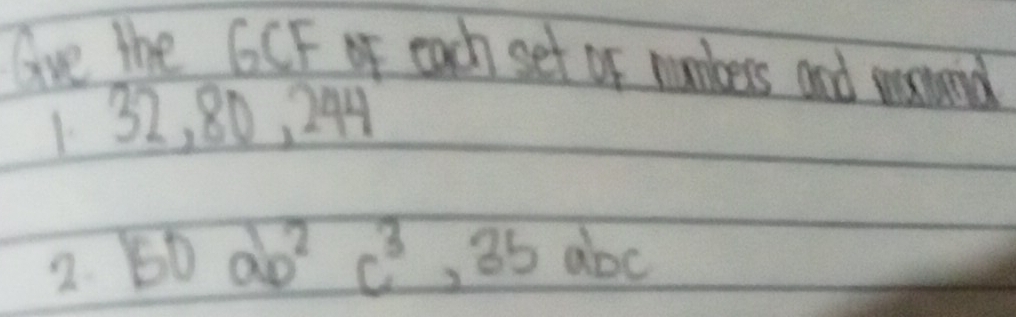 Give the GCF of each set of numbers and
1. 32, 80, 244
2. 150 ab² c³, 35 abc